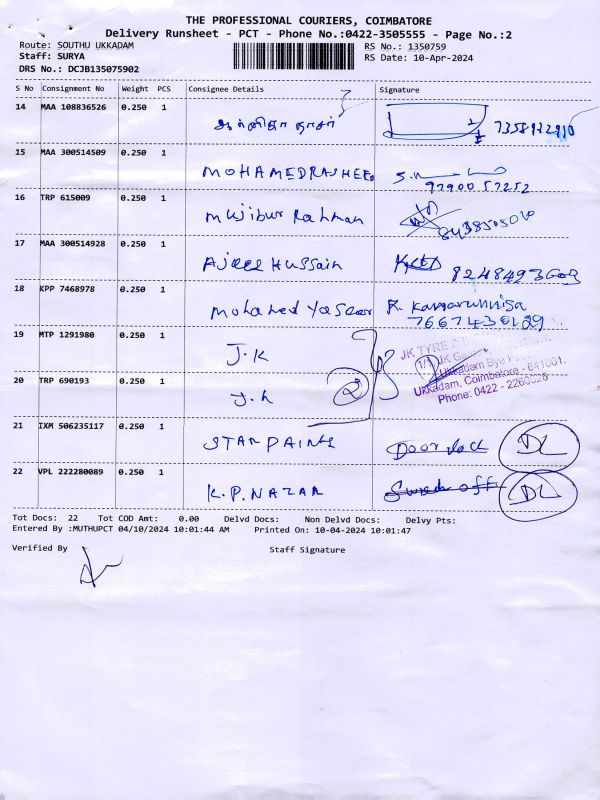 THE PROFESSIONAL COURIERS, COIMBATORE
Delivery Runsheet - PCT - Phone No.:0422-3505555 - Page No.:2
Route: SOUTHU UKKADAM
RS No.: 1350759
Staff: SURYA
RS Date: 10-Apr-2024
DRS No.: DCJB135075902
S No Consignment No Weight PCS Consignee Details Signature
14 MAA 108836526 0.250 1
15 MAA 300514509 0.250 1 MOHAMEDRASHEED
9790057252
16 TRP 615009 0.250 1 Mujibur Rahman
17 MAA 300514928 0.250 1 Ajeez Hussain
18 KPP 7468978 0.250 1 Mohamed Yaseer R. Kamarunnisa
7667430129
19 MTP 1291980 0.250 1 J.K
JK TYRE &
1/1 JK
Ukkadam Bye
Ukkadam, Coimbatore - 641001.
Phone: 0422 -
20 TRP 690193 0.250 1 J.k 2
21 IXM 506235117 0.250 1 STAR PAINTS Door lock DL
22 VPL 222280089 0.250 1 K.P.NAZAR DL
Tot Docs: 22 Tot COD Amt: 0.00 Delvd Docs: Non Delvd Docs: Delvy Pts:
Entered By :MUTHUPCT 04/10/2024 10:01:44 AM Printed On: 10-04-2024 10:01:47
Verified By Staff Signature